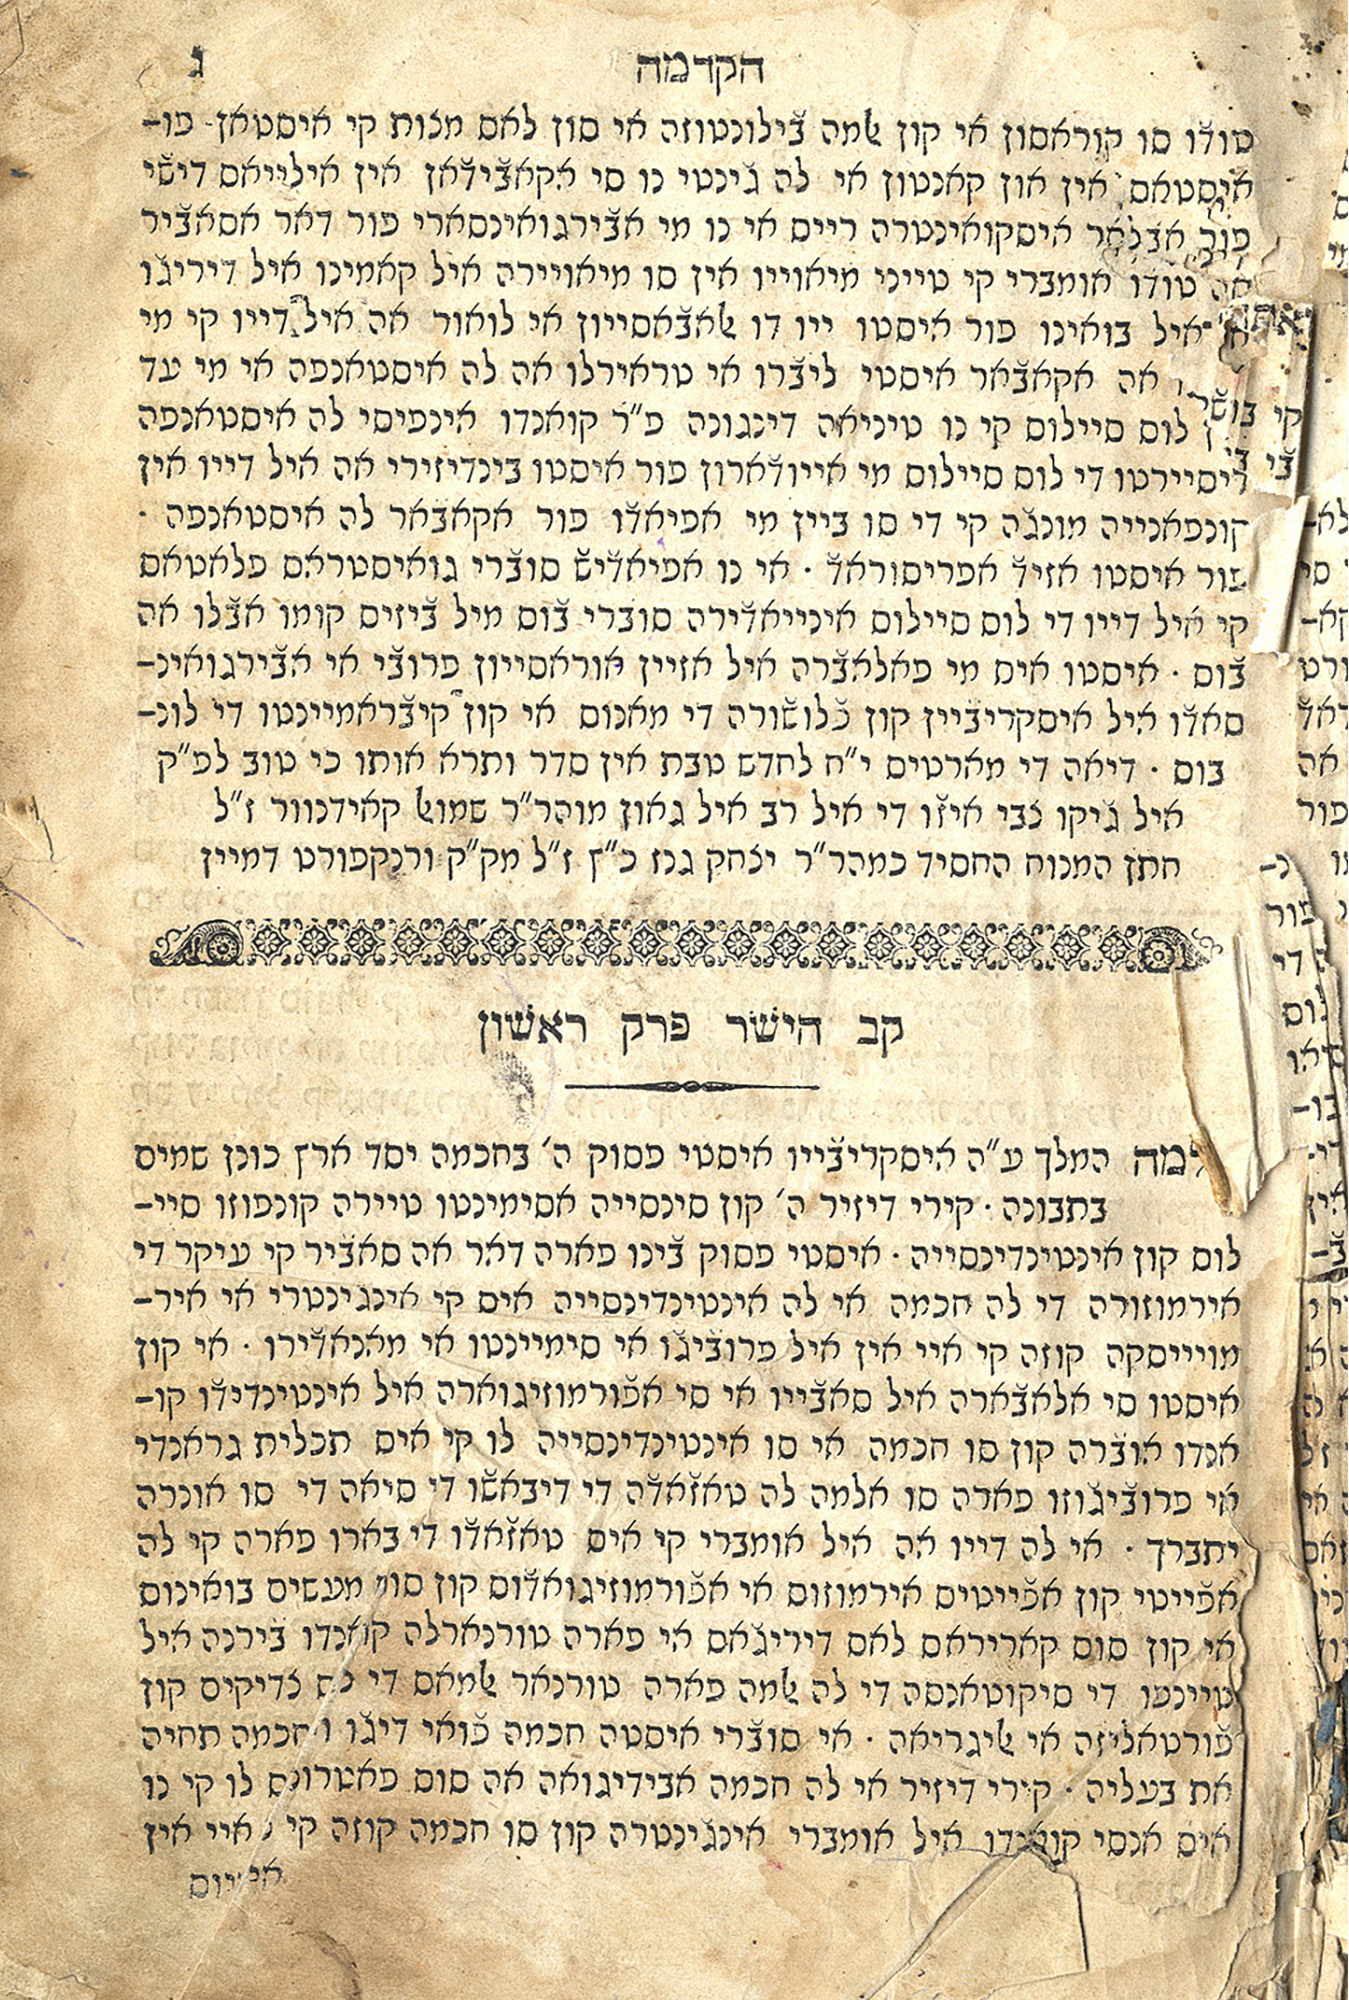 הקדמה
ג
טודֿו סו קוראסון אי קון ﭏמה בֿילונטוזה אי סון לאס מכות קי איסטאן פו־
איסטאס אין און קאנטון אי לה גֿינטי נו סי אקאבֿידֿאן אין אילייאס דישֿי
פור אבלאר איסקואינטרה רייס אי נו מי אבֿירגואינסארי פור דאר אסאבֿיר
אה טודו אומברי קי טייני מיאוייו אין סו מיאויירה איל קאמינו איל דיריגֿו
איל בואינו פור איסטו ייו דו ﭏאבֿאסייון אי לואור אה איל דייו קי מי
אה אקאבֿאר איסטי ליבֿרו אי טראירלו אה לה איסטאנפה אי מי עד
לוס סיילוס קי נו טיניאה דינגונה פ״ר קואנדו אינפיסי לה איסטאנפה
דיסיירטו די לוס סיילוס מי אייודֿארון פור איסטו בינדיזירי אה איל דייו אין
קונפאנייה מונגֿה קי די סו ביין מי אפיאדֿו פור אקאבֿאר לה איסטאנפה ·
פור איסטו אזידֿ אפריסוראדֿ · אי נו אפיאדֿיש סובֿרי גואיסטראס פלאטאס
קי איל דייו די לוס סיילוס אינייאדֿירה סוברי בֿוס מיל בֿיזיס קומו אבֿלו אה
בֿוס · איסטו איס מי פאלאבֿרה איל אזיין אוראסייון פרובֿי אי אבֿירגואינ־
סאדֿו איל איסקריבֿיין קון כֿלושֿורה די מאנוס אי קון קיבֿראמיינטו די לונ־
בוס · דיאה די מארטיס י״ח לחדש טבת אין סדר ותרא אותו כי טוב לפ״ק
איל גֿיקו צבי איזֿו די איל רב איל גאון מוהר״ר שמוﭏ קאידנוור ז״ל
חתן המנוח החסיד כמהר״ר יצחק גנז כ״ץ ז״ל מק״ק ורנקפורט דמיין
קב הישר פרק ראשון
המלך ע״ה איסקריבֿייו איסטי פסוק ה׳ בחכמה יסד ארץ כונן שמים
בתבונה · קירי דיזיר ה׳ קון סינסייה אסימינטו טיירה קונפוזו סיי־
לוס קון אינטינדינסייה · איסטי פסוק בֿינו פארה דאר אה סאבֿיר קי עיקר די
אירמוזורה די לה חכמה אי לה אינטינדינסייה איס קי אינגינטרי אי איר־
מוייסקה קוזה קי איי אין איל פרובֿיגֿו אי סימיינטו אי מאנאדֿירו · אי קון
איסטו סי אלאבֿארה איל סאבֿייו אי סי אפֿורמוזיגוארה איל אינטינדידֿו קו־
אנדו אובֿרה קון סו חכמה אי סו אינטינדינסייה לו קי איס תכלית גראנדי
אי פרובֿיגֿוזו פארה סו אלמה לה טאזֿאדֿה די דיבאשֿו די סיאה די סו אונרה
יתברך · אי לה דייו אה איל אומברי קי איס טאזֿאדֿו די בארו פארה קי לה
אפֿייטי קון אפֿייטיס אירמוזוס אי אפֿורמוזיגואדֿוס קון סוס מעשים בואינוס
אי קון סוס קאריראס לאס דיריגֿאס אי פארה טורנארלה קואנדו בֿירנה איל
טיינפו די סיקוטאנסה די לה ﭏמה פארה טורנאר ﭏמאס די צדיקים קון
פֿורטאליזה אי ﭏיגריאה · אי סובֿרי איסטה חכמה פֿואי דיגֿו חכמה תחיה
את בעליה · קירי דיזיר אי לה חכמה אבידיגואה אה סוס פאטרונס לו קי נו
איס אנסי קואנדו איל אומברי אינגֿינטרה קון סו חכמה קוזה קי איי אין